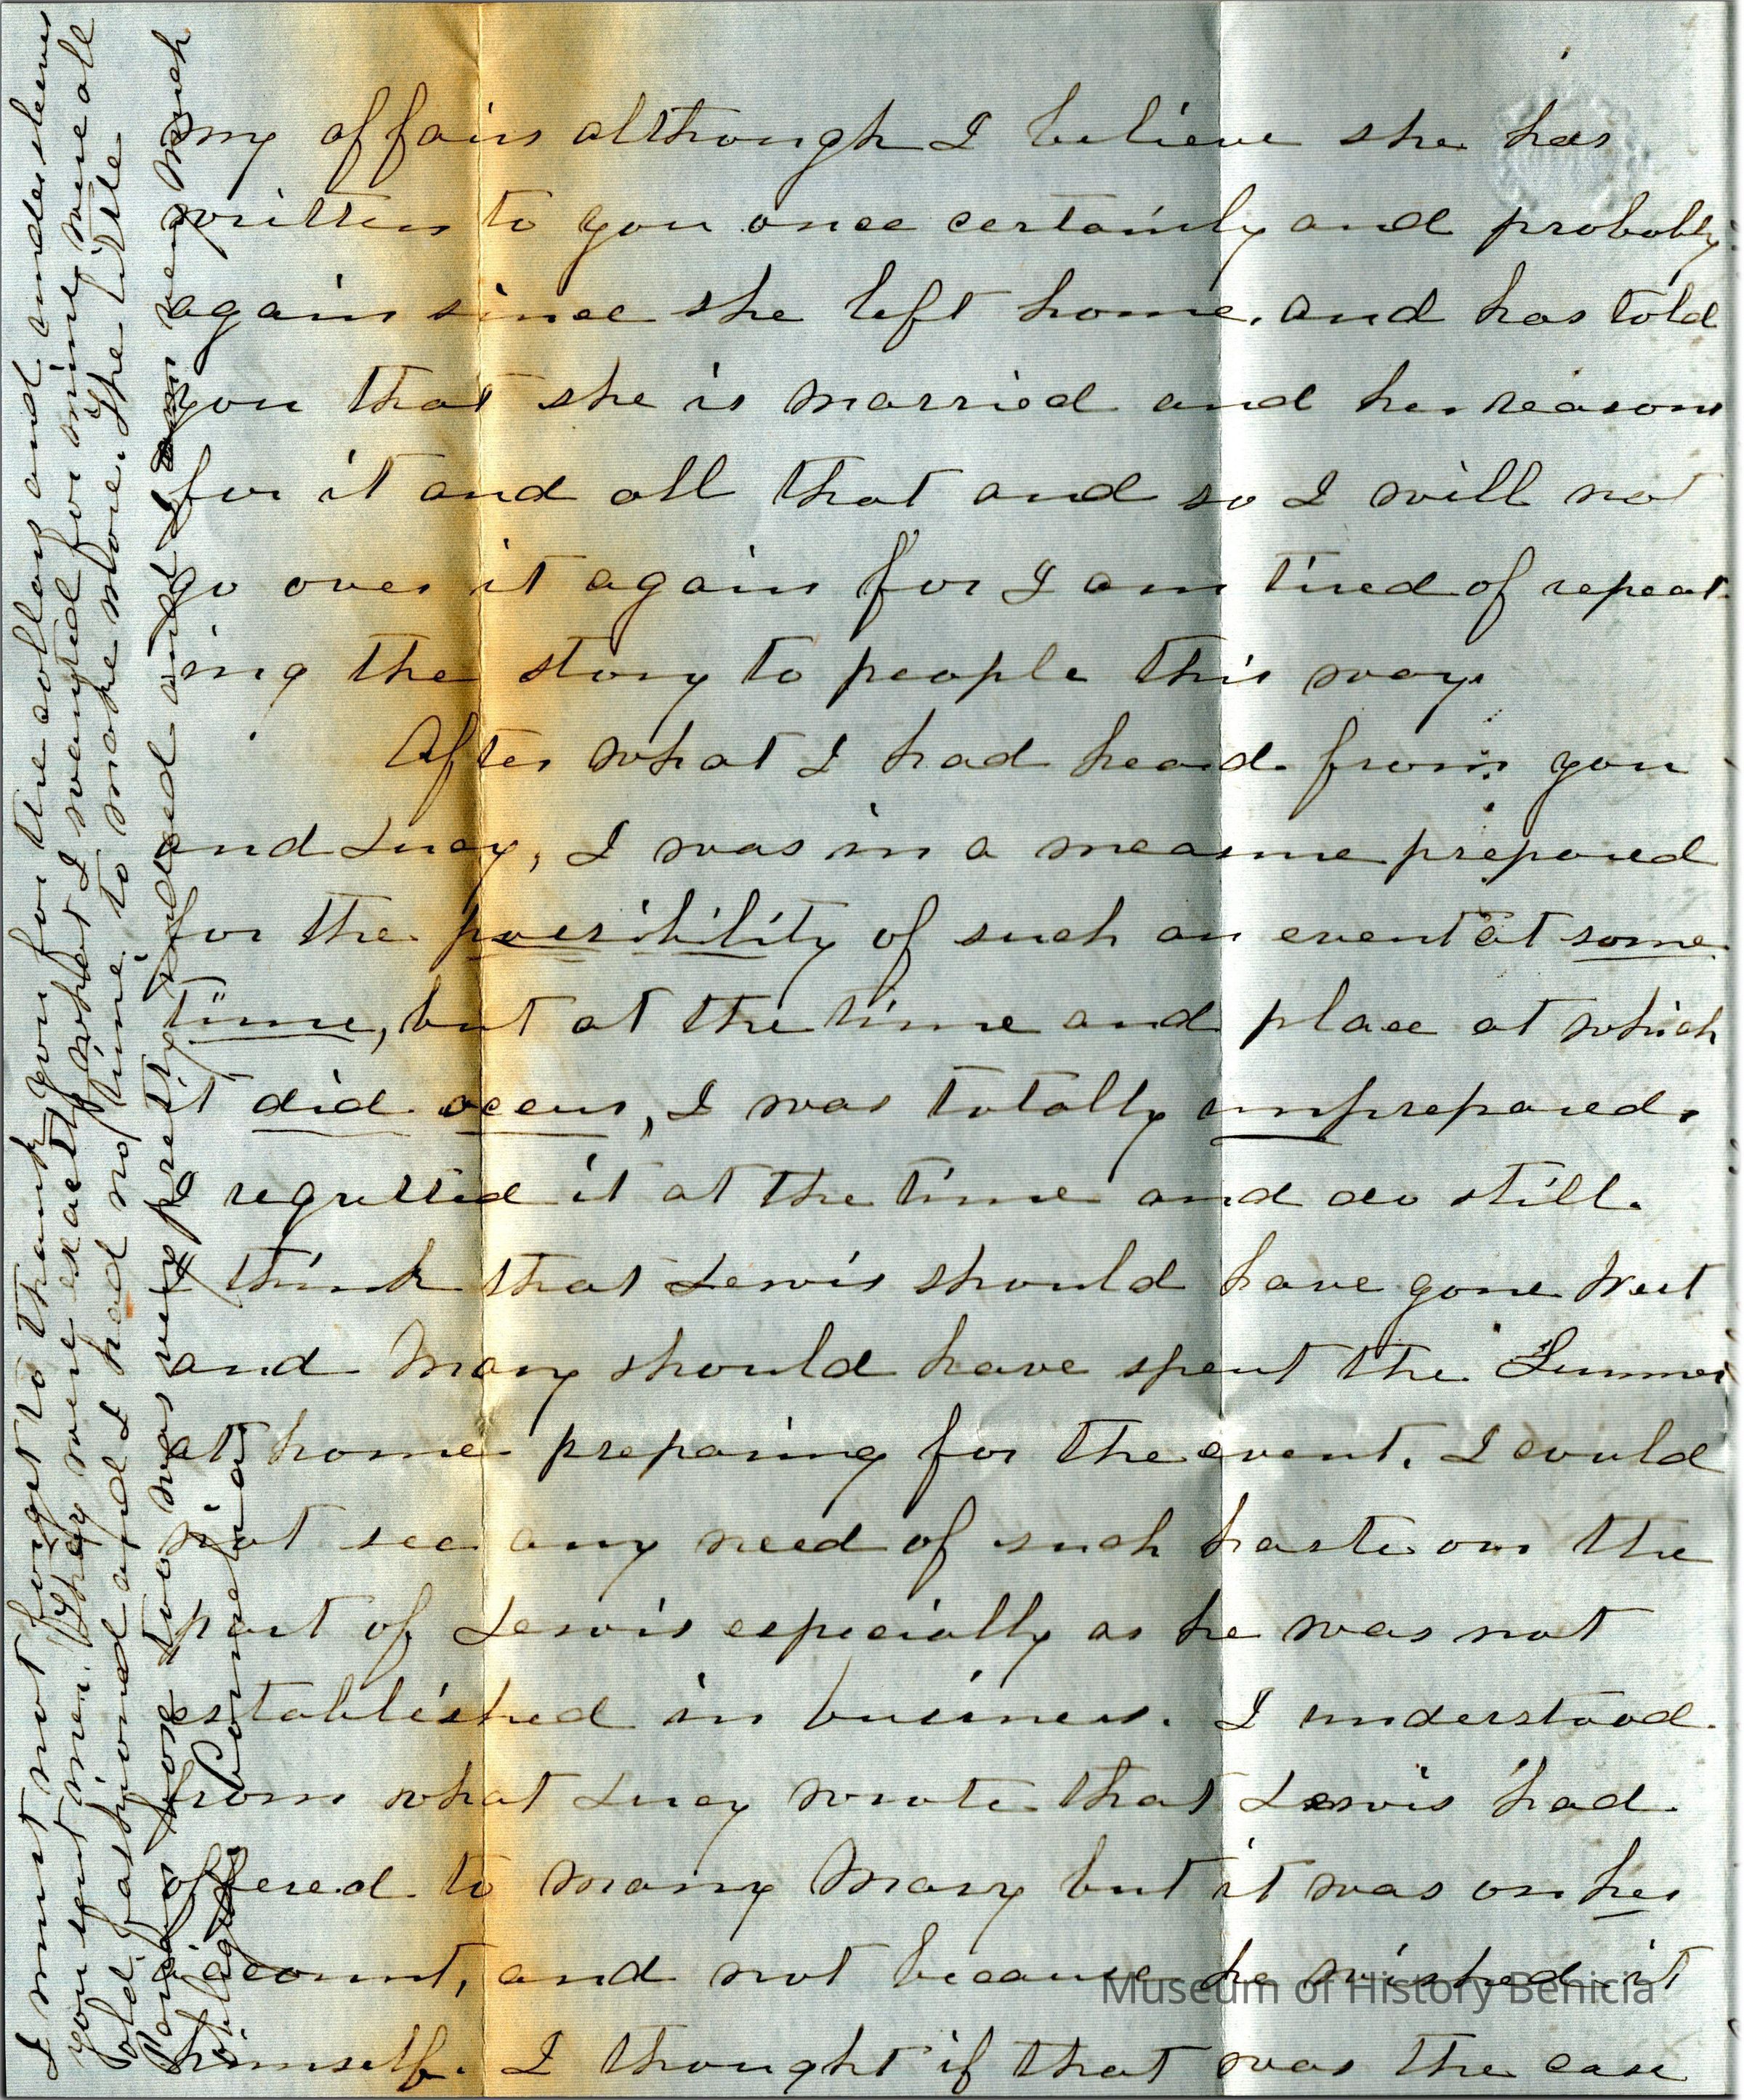 my affairs although I believe she has
written to you once certainly and probably
again since she left home, and has told
you that she is married and her reasons
for it and all that and so I will not
go over it again for I am tired of repeat-
ing the story to people this way.
After what I had heard from you
and Lucy, I was in a measure prepared
for the possibility of such an event at some
time, but at the time and place at which
it did occur, I was totally unprepared.
I regretted it at the time and do still.
I think that Lewis should have gone West
and Mary should have spent the Summer
at home preparing for the event. I could
not see any need of such haste on the
part of Lewis especially as he was not
established in business. I understood
from what Lucy wrote that Lewis had
offered to marry Mary but it was on her
account, and not because he wished it
himself. I thought if that was the case
I must not forget to thank you for the collars and undersleeves
you sent me. They were exactly what I wanted for mine were all
old fashioned and I had no time to make more. The little
box too was very pretty indeed and I am very much
obliged
Cornelia.
Museum of History Benicia